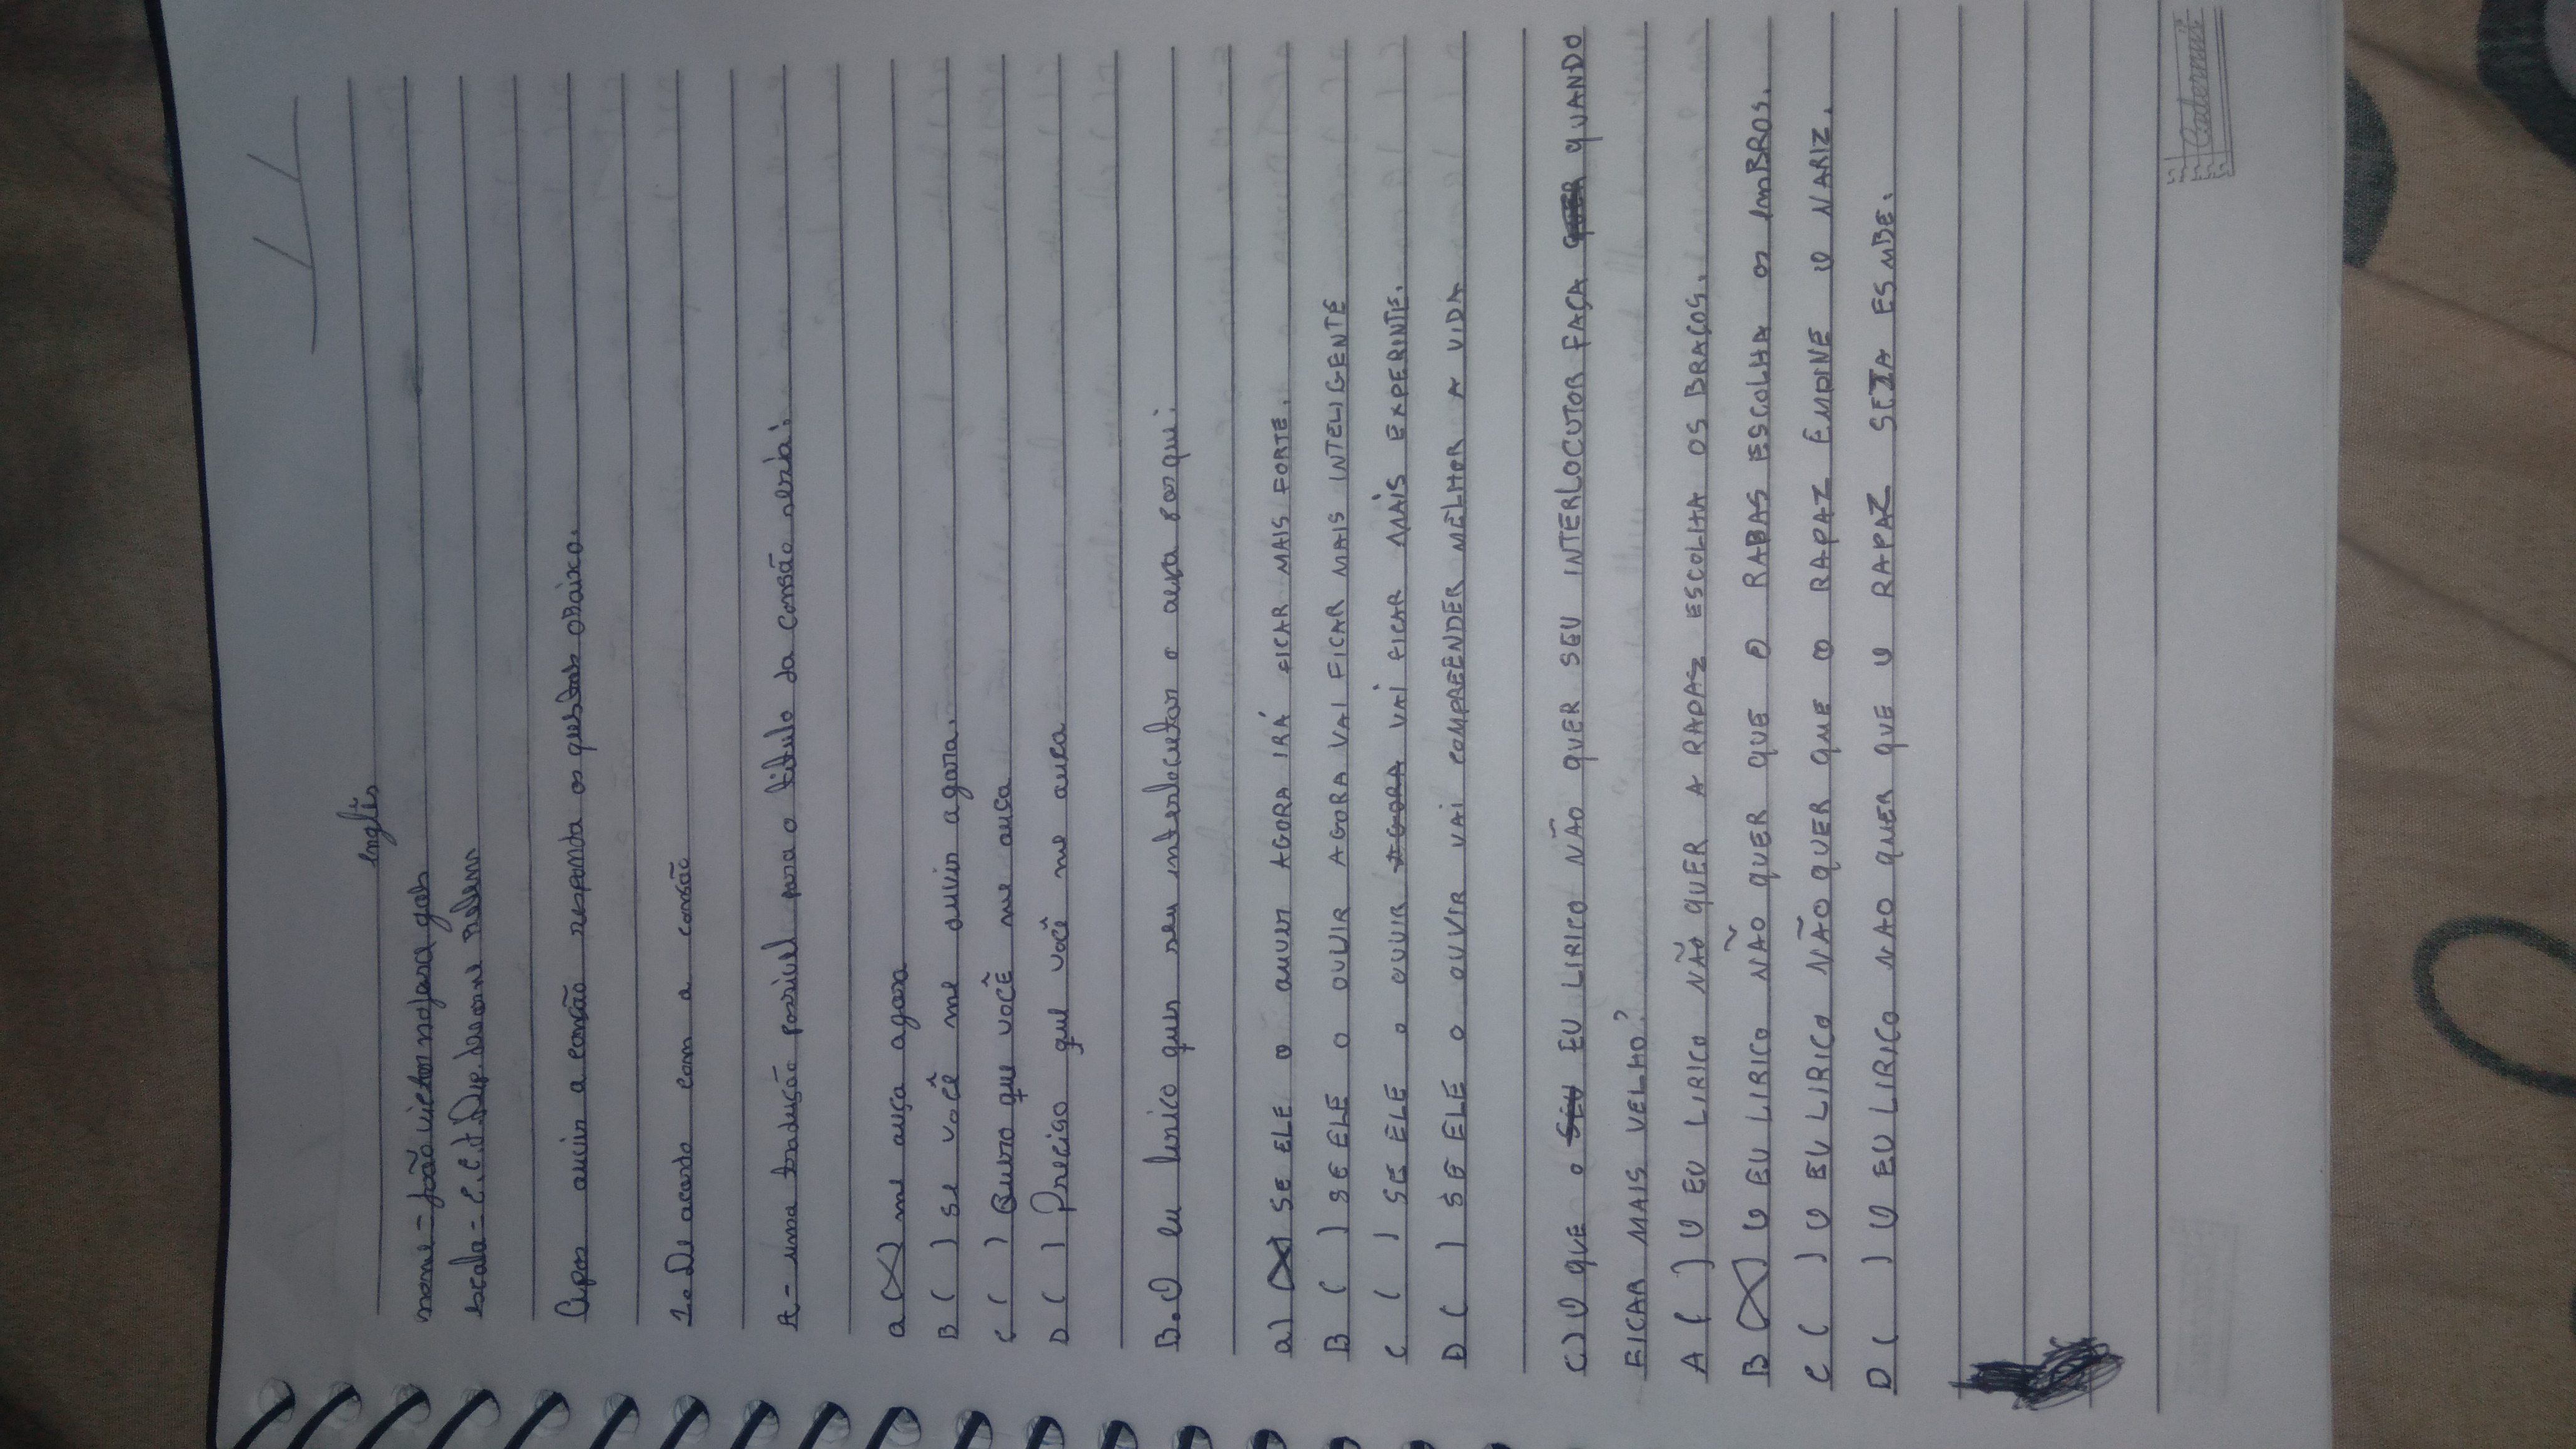 Inglês
nome = João victor
escola = E.E.
Apos auvir a consão responda as questoes abaixo.
1. De acordo com a consão
A - uma tradução possivel para o titulo da consão seria:
a (X) me auça agora
B ( ) se você me ouvir agora.
C ( ) Quero que você me auça
D ( ) Preciso que você me auça
B. O eu lirico quer seu interlocutor o porque:
a) (X) SE ELE o auvir AGORA IRÁ FICAR MAIS FORTE.
B ( ) SE ELE O OUVIR AGORA VAI FICAR MAIS INTELIGENTE
C ( ) SE ELE O OUVIR AGORA VAI FICAR MAIS EXPERINTE.
D ( ) SE ELE O OUVIR VAI COMPREENDER MELHOR A VIDA
C) O QUE O SEU EU LIRICO NÃO QUER SEU INTERLOCUTOR FAÇA QUER QUANDO
FICAR MAIS VELHO?
A ( ) O EU LIRICO NÃO QUER A RAPAZ ESCOLHA OS BRAÇOS.
B (X) O EU LIRICO NÃO QUER QUE O RABAS ESCOLHA os omBROS.
C ( ) O EU LIRICO NÃO QUER QUE O RAPAZ EMPINE O NARIZ.
D ( ) O EU LIRICO NAO QUER QUE O RAPAZ SEJA ESNBE.
Cadernu's